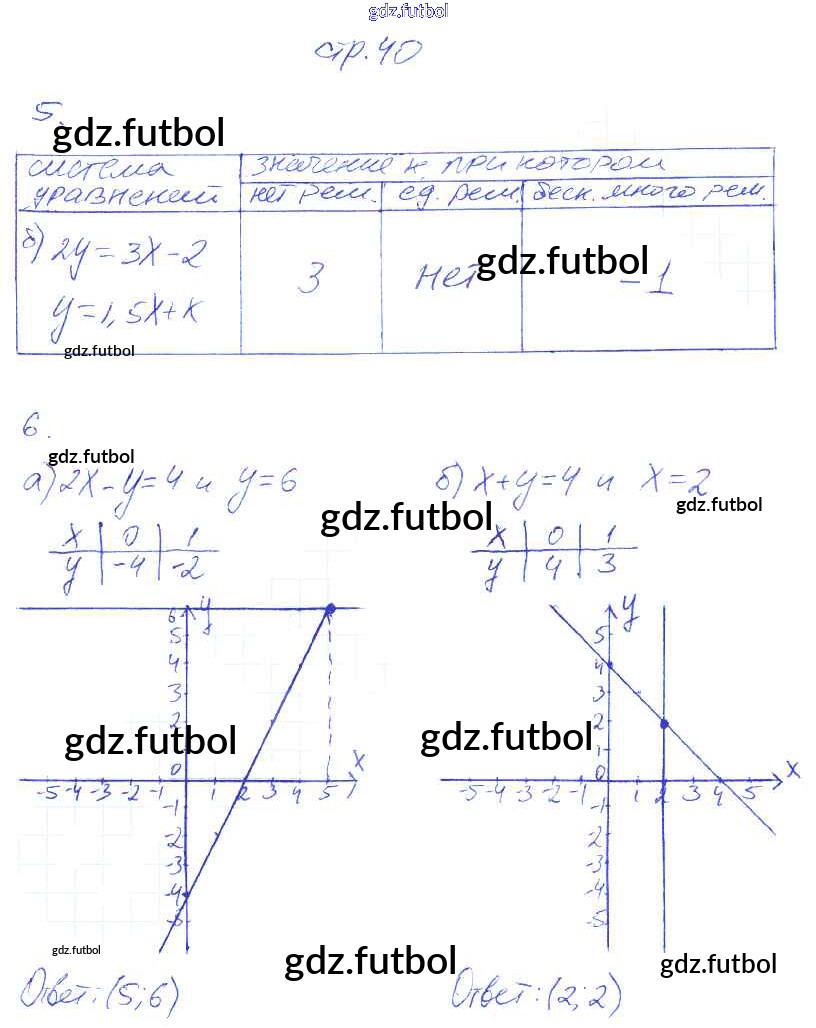 gdz.futbol
стр.40
5.
gdz.futbol
система уравнений | значение к, при котором
нет реш. | ед. реш. | беск. много реш.
б) 2y=3x-2
y=1,5x+к
3
нет
gdz.futbol
-1
gdz.futbol
6.
gdz.futbol
а) 2x-y=4 и y=6
б) x+y=4 и x=2
gdz.futbol
gdz.futbol
x | 0 | 1
y | -4 | -2
x | 0 | 1
y | 4 | 3
y
6
5
4
3
2
0
x
-5 -4 -3 -2 -1 1 2 3 4 5
-1
-2
-3
-4
-5
gdz.futbol
y
5
4
3
2
1
0
x
-5 -4 -3 -2 -1 1 2 3 4 5
-1
-2
-3
-4
-5
gdz.futbol
gdz.futbol
gdz.futbol
gdz.futbol
Ответ: (5;6)
Ответ: (2;2)